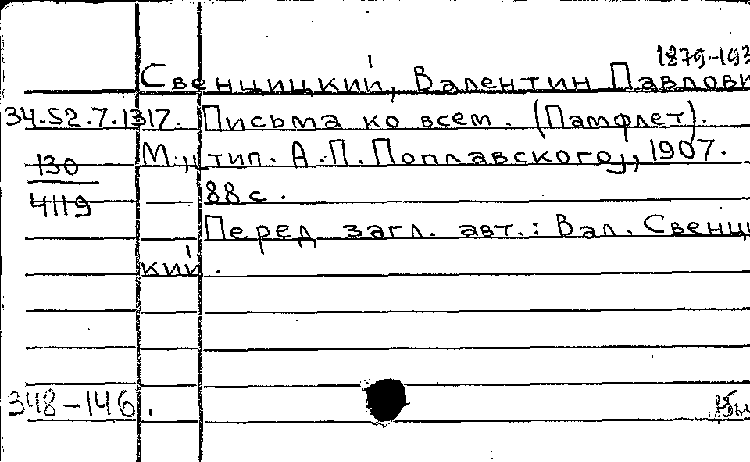 1879-193
Свенцицкий, Валентин Павлови
34.52.7.1317. Письма ко всем. (Памфлет).
130 М., тип. А.П. Поплавского, 1907.
4119 88 с.
Перед загл. авт.: Вал. Свенци
кий.
348-146.